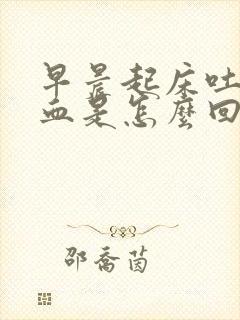 早晨起床吐
血是怎麼回
邵喬茵